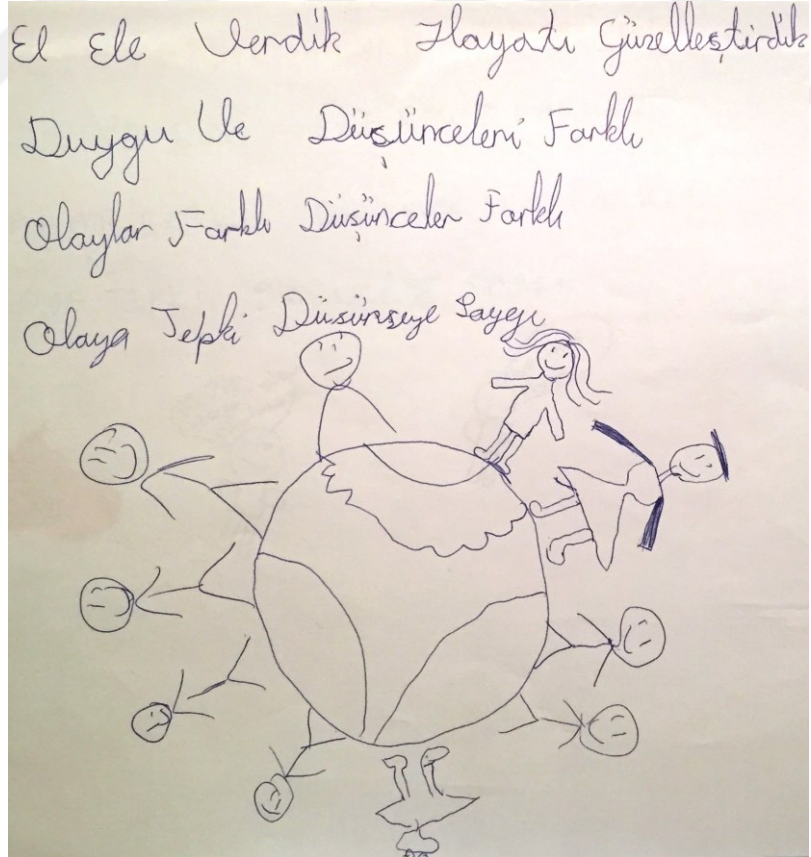 El Ele Verdik Hayatı Güzelleştirdik
Duygu Ve Düşünceleri Farklı
Olaylar Farklı Düşünceler Farklı
Olaya Tepki Düşünseye Saygı